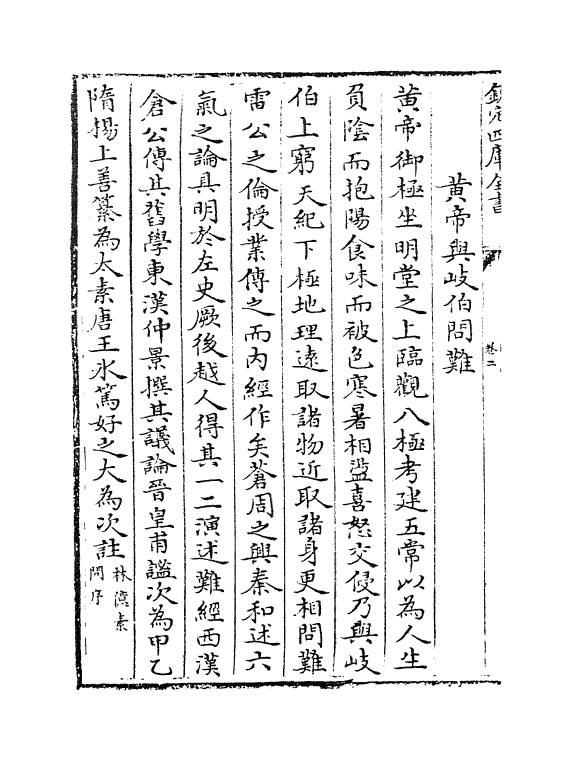 欽定四庫全書
卷二
黄帝與岐伯問難
黄帝御極坐明堂之上臨觀八極考建五常以為人生
負陰而抱陽食味而被色寒暑相盪喜怒交侵乃與岐
伯上窮天紀下極地理遠取諸物近取諸身更相問難
雷公之倫授業傳之而内經作矣蒼周之興秦和述六
氣之論具明於左史厥後越人得其一二演述難經西漢
倉公傳其舊學東漢仲景撰其議論晉皇甫謐次為甲乙
隋楊上善纂為太素唐王氷篤好之大為次註
林億素
問序